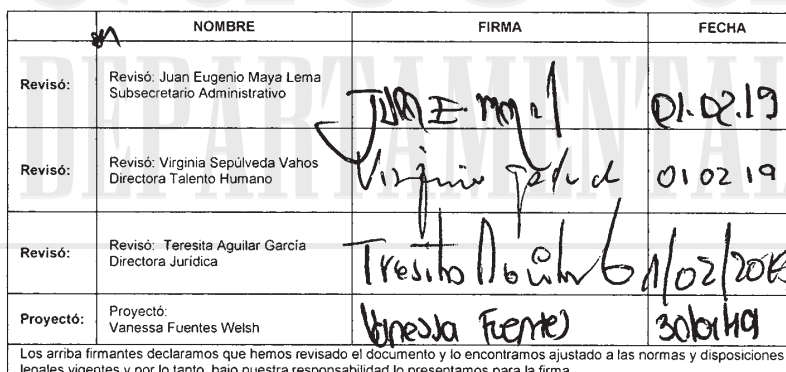 DEPARTAMENTAL
NOMBRE FIRMA FECHA
Revisó: Revisó: Juan Eugenio Maya Lema
Subsecretario Administrativo
01.02.19
Revisó: Revisó: Virginia Sepúlveda Vahos
Directora Talento Humano
Virginia 01 02 19
Revisó: Revisó: Teresita Aguilar García
Directora Jurídica
1/02/
Proyectó: Proyectó:
Vanessa Fuentes Welsh
Vanessa Fuentes
Los arriba firmantes declaramos que hemos revisado el documento y lo encontramos ajustado a las normas y disposiciones
legales vigentes y por lo tanto, bajo nuestra responsabilidad lo presentamos para la firma.